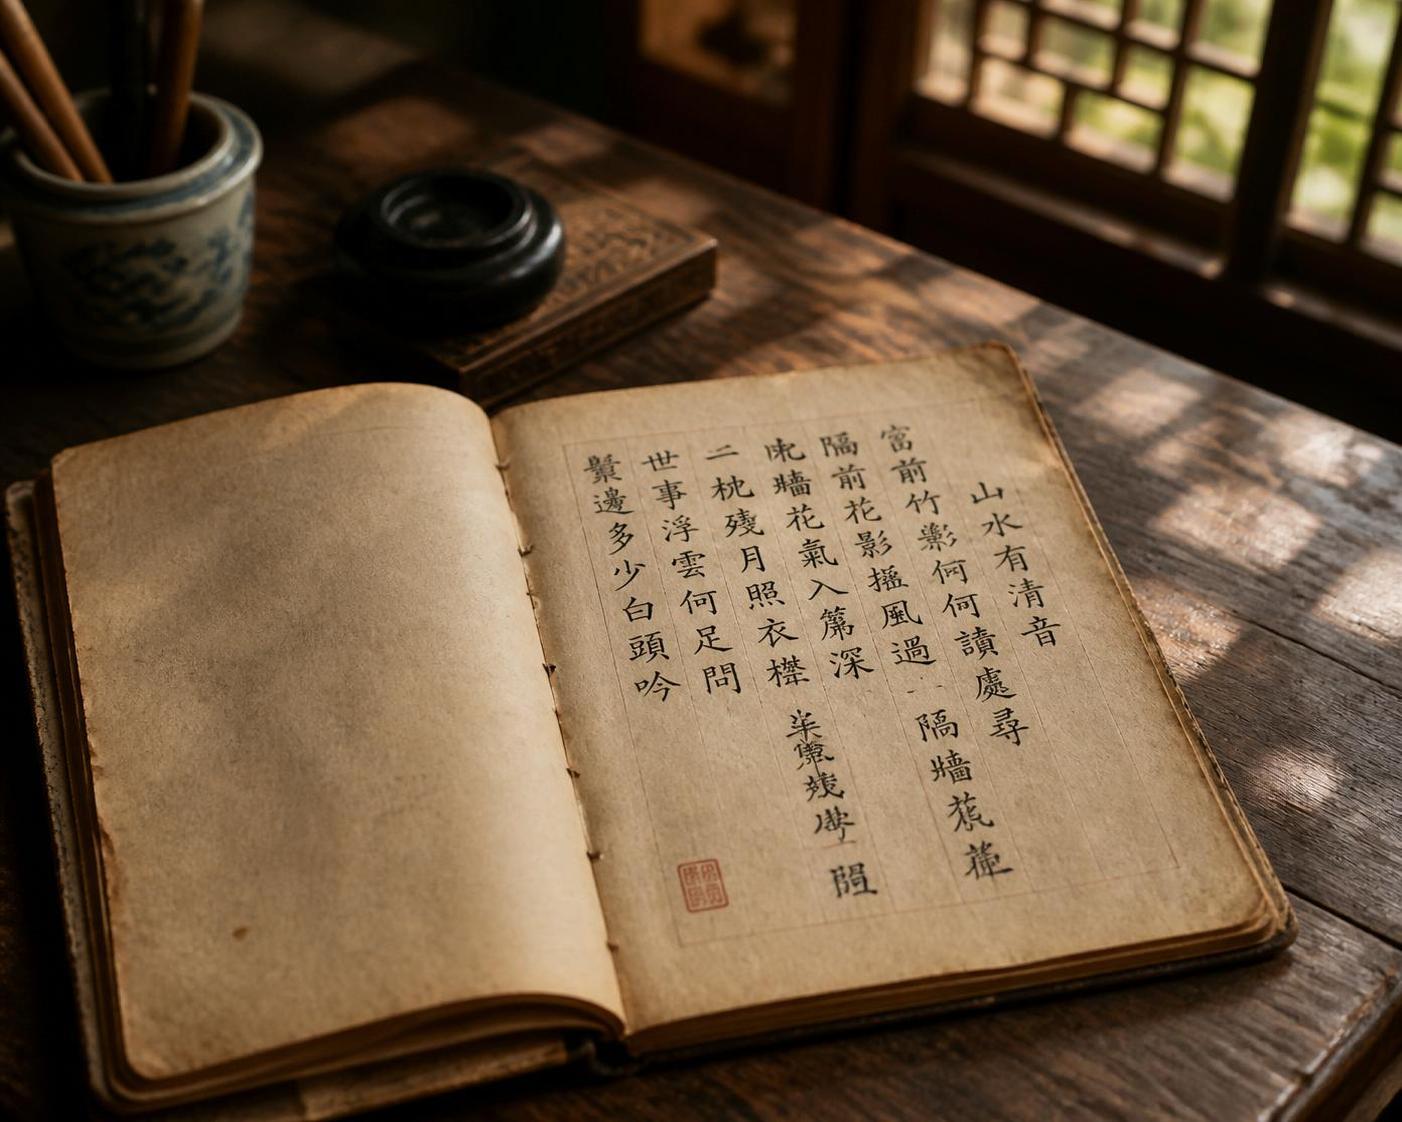 山水有清音
窗前竹影何何讀處尋
隔前花影搖風過 隔牆蕉
牆花氣入簾深
二枕殘月照衣襟 殘 隔
世事浮雲何足問
鬢邊多少白頭吟